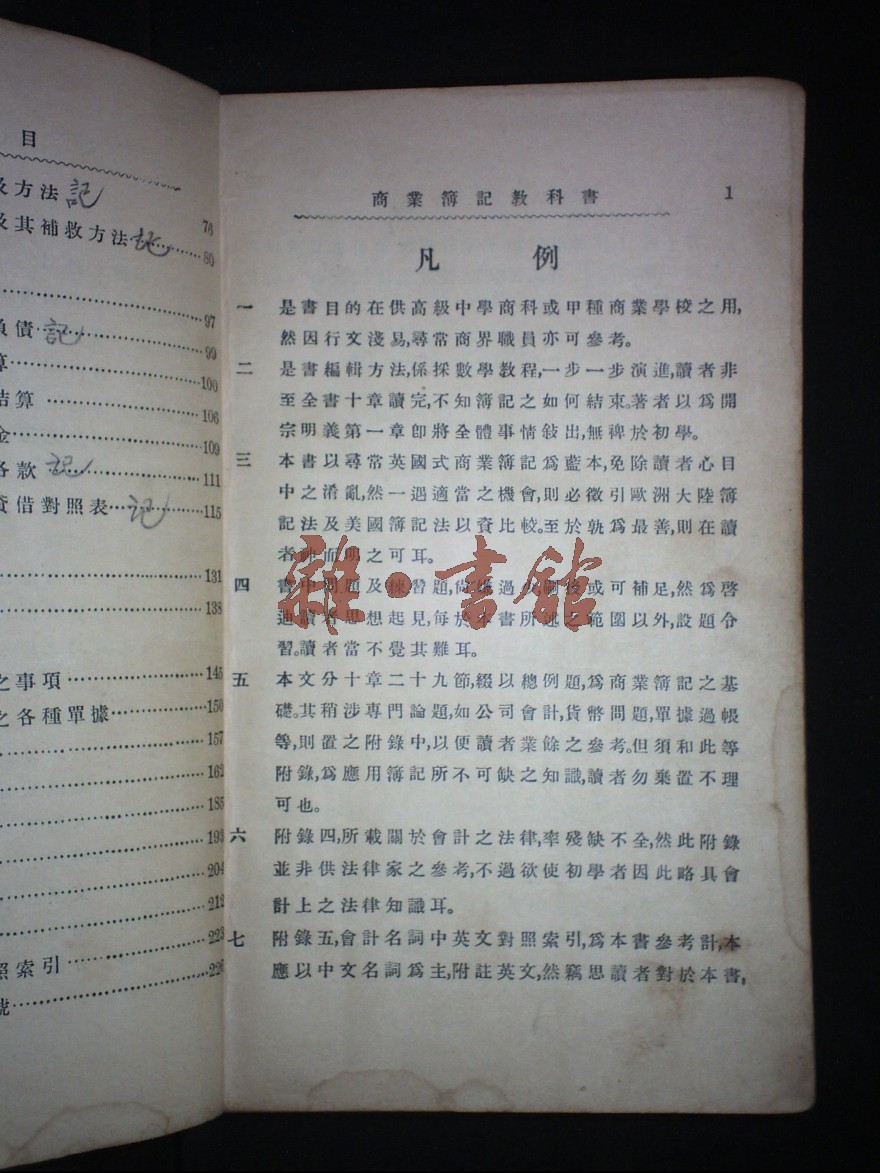 目
及方法 記
76
及其補救方法 記 80
97
負債 記 99
算 100
結算 106
金 109
各款 記 111
資借對照表 記 115
131
138
之事項 145
之各種單據 150
157
162
185
193
204
212
223
照索引 226
號
商業簿記教科書 1
凡例
一 是書目的在供高級中學商科或甲種商業學校之用,
然因行文淺易,尋常商界職員亦可參考。
二 是書編輯方法,係採數學教程,一步一步演進,讀者非
至全書十章讀完,不知簿記之如何結束。著者以爲開
宗明義第一章即將全體事情敍出,無裨於初學。
三 本書以尋常英國式商業簿記爲藍本,免除讀者心目
中之淆亂,然一遇適當之機會,則必徵引歐洲大陸簿
記法及美國簿記法以資比較。至於孰爲最善,則在讀
者神而明之可耳。
四 書中問題及練習題,尚嫌過少,嗣後或可補足,然爲啓
迪讀者思想起見,每於本書所述之範圍以外,設題令
習。讀者當不覺其難耳。
五 本文分十章二十九節,綴以總例題,爲商業簿記之基
礎。其稍涉專門論題,如公司會計,貨幣問題,單據過帳
等,則置之附錄中,以便讀者業餘之參考。但須知此等
附錄,爲應用簿記所不可缺之知識,讀者勿棄置不理
可也。
六 附錄四,所載關於會計之法律,率殘缺不全,然此附錄
並非供法律家之參考,不過欲使初學者因此略具會
計上之法律知識耳。
七 附錄五,會計名詞中英文對照索引,爲本書參考計,本
應以中文名詞爲主,附註英文,然竊思讀者對於本書,
雜·書館